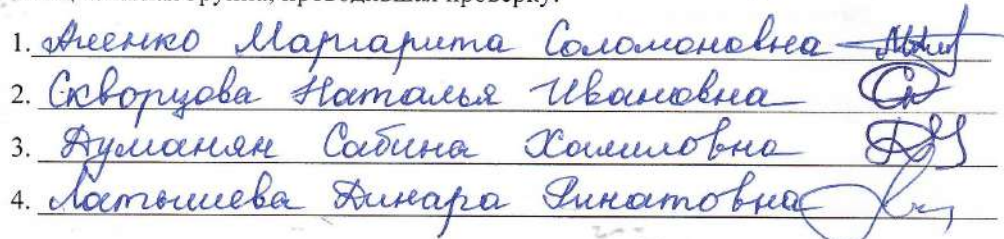 группа, проводившая проверку:
1. Лиенко Маргарита Соломоновна
2. Скворцова Наталья Ивановна
3. Думанян Сабина Халиловна
4. Латышева Динара Ринатовна